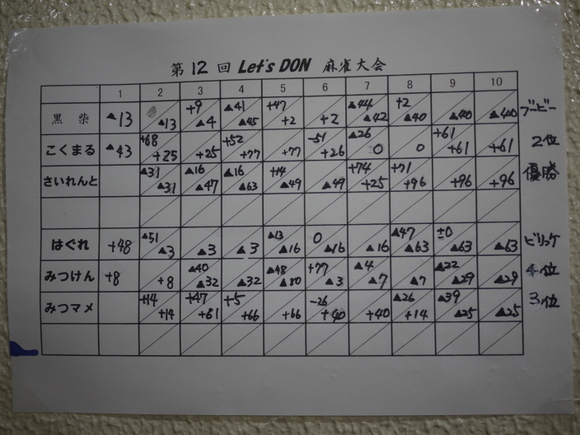 第 12 回 Let's DON 麻雀大会
1 2 3 4 5 6 7 8 9 10
黒柴 ▲13 ▲13 +9 ▲4 ▲41 ▲45 +47 +2 +2 ▲44 ▲42 +2 ▲40 ▲40 ▲40 ブービー
こくまる ▲43 +68 +25 +25 +52 +77 +77 -51 +26 ▲26 0 0 +61 +61 +61 2位
さいれんと ▲31 ▲31 ▲16 ▲47 ▲16 ▲63 +14 ▲49 ▲49 +74 +25 +71 +96 +96 +96 優勝
はぐれ +48 ▲51 ▲3 ▲3 ▲3 ▲13 ▲16 0 ▲16 ▲16 ▲47 ▲63 ±0 ▲63 ▲63 ビリッケ
みつけん +8 +8 ▲40 ▲32 ▲32 ▲48 ▲80 +77 ▲3 ▲4 ▲7 ▲7 ▲22 ▲29 ▲29 4位
みつマメ +14 +14 +47 +61 +5 +66 +66 -26 +40 +40 ▲26 +14 ▲39 ▲25 ▲25 3位